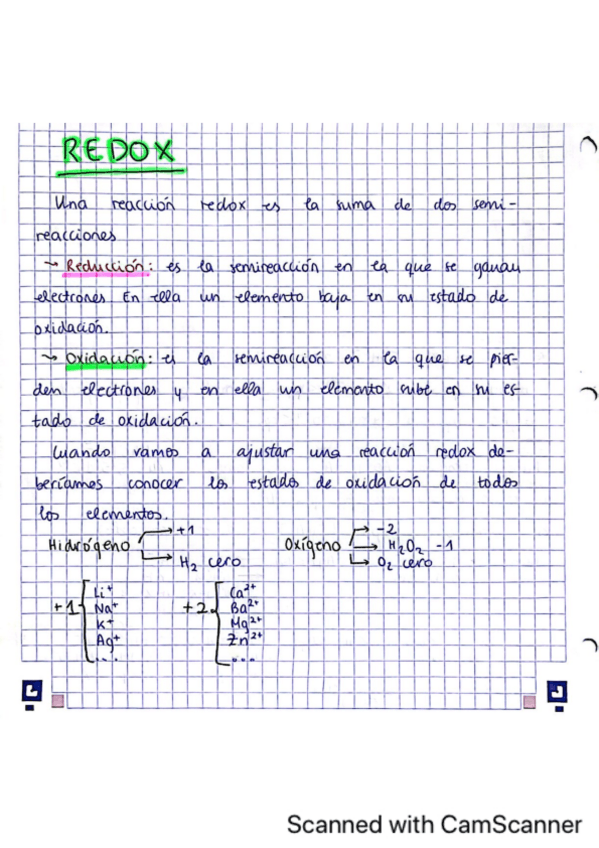 REDOX
Una reacción redox es la suma de dos semi-
reacciones
→ Reducción: es la semireacción en la que se ganan
electrones En ella un elemento baja en su estado de
oxidación.
→ Oxidación: es la semireacción en la que se pier-
den electrones y en ella un elemento sube en su es-
tado de oxidación.
Cuando vamos a ajustar una reacción redox de-
beríamos conocer los estados de oxidación de todos
los elementos.
Hidrógeno → +1
→ H₂ cero
Oxígeno → -2
→ H₂O₂ -1
→ O₂ cero
+1 { Li⁺
Na⁺
K⁺
Ag⁺
...
+2 { Ca²⁺
Ba²⁺
Mg²⁺
Zn²⁺
...
Scanned with CamScanner